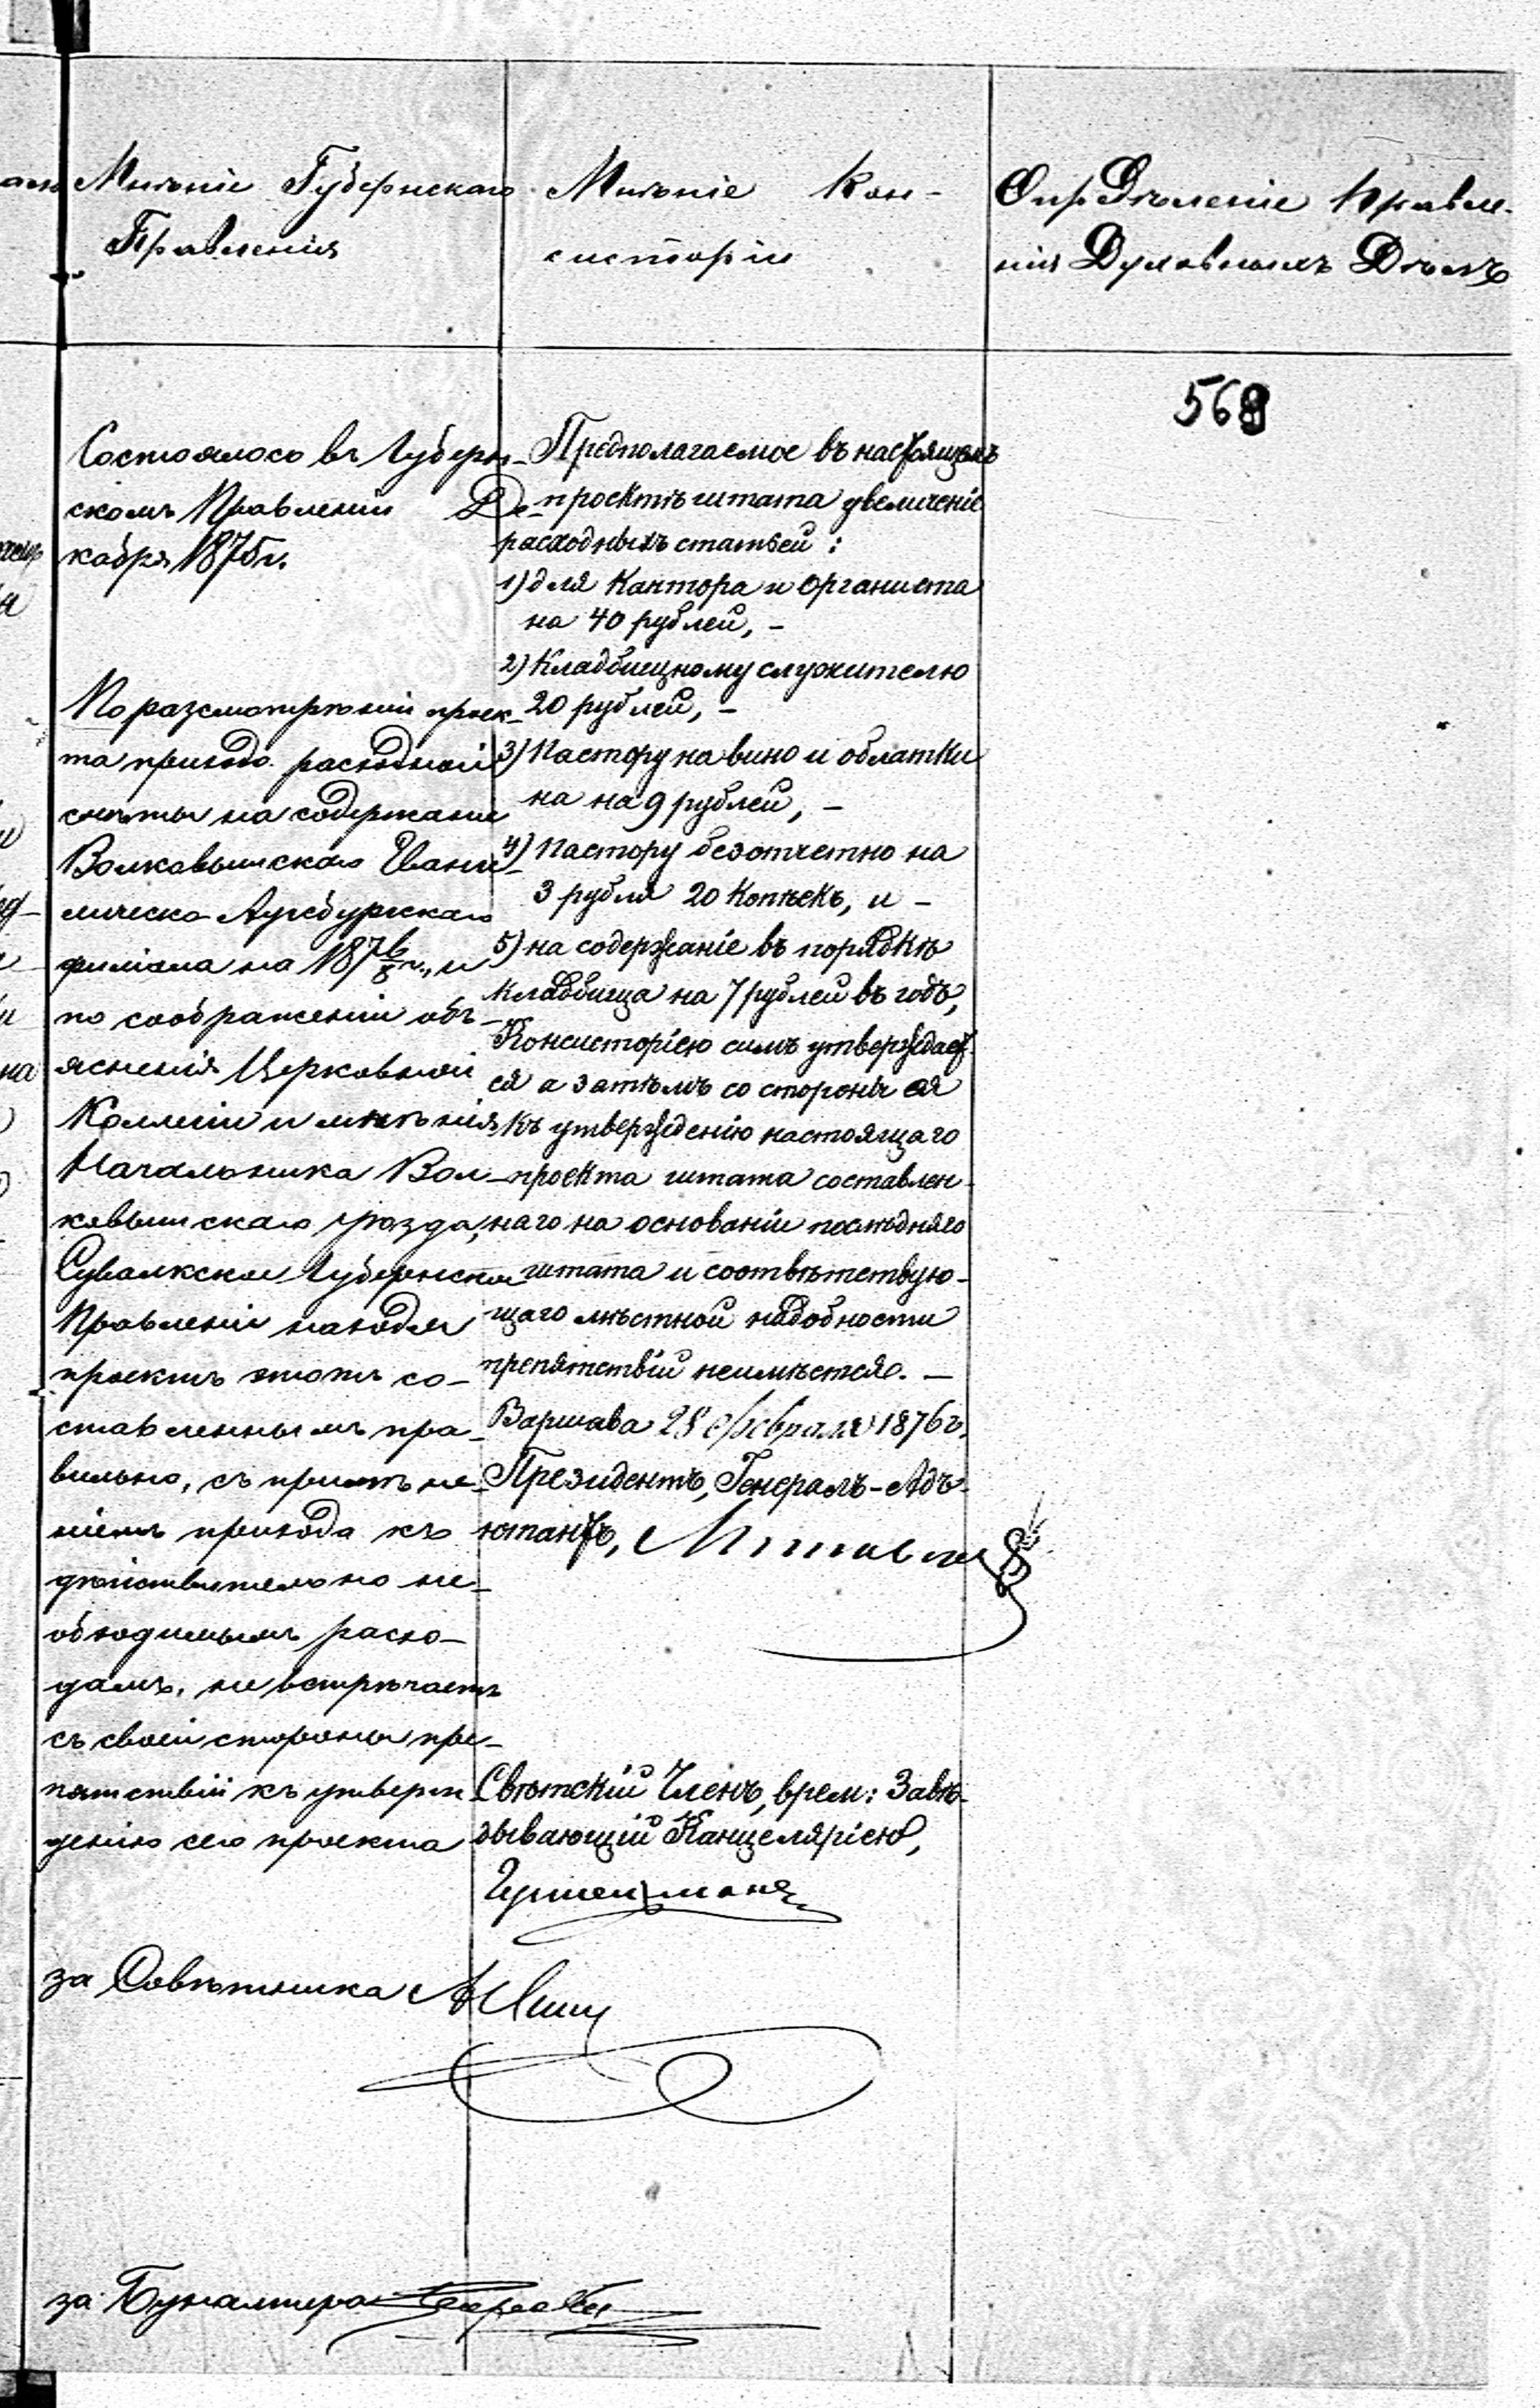 Мнѣніе Губернскаго
Правленія
Мнѣніе Кон-
систоріи
Опредѣленіе Правле-
нія Духовныхъ Дѣлъ
568
Состоялось въ Губерн-
скомъ Правленіи Де-
кабря 1875 г.
По разсмотрѣніи проек-
та приходо-расходной
смѣты на содержаніе
Волковышскаго Еванге-
лическо-Аугсбургскаго
филіала на 1876/8 г., и
по соображеніи объ-
ясненія Церковной
Коллегіи и мнѣнія
Начальника Вол-
ковышскаго уѣзда,
Сувалкское Губернское
Правленіе находя
проектъ этотъ со-
ставленнымъ пра-
вильно, съ примѣне-
ніемъ прихода къ
дѣйствительно не-
обходимымъ расхо-
дамъ, не встрѣчаетъ
съ своей стороны пре-
пятствій къ утверж-
денію сего проекта
за Совѣтника
за Бухгалтера
Предполагаемое въ настоящемъ
проектѣ штата увеличеніе
расходныхъ статьей:
1) для Кантора и Органиста
на 40 рублей, –
2) Кладбищному служителю
20 рублей, –
3) Пастору на вино и облатки
на на 9 рублей, –
4) Пастору безотчетно на
3 рубля 20 Копѣекъ, и –
5) на содержаніе въ порядкѣ
кладбища на 7 рублей въ годъ,
Консисторіею симъ утверждает-
ся а затѣмъ со стороны ея
къ утвержденію настоящаго
проекта штата составлен-
наго на основаніи послѣдняго
штата и соотвѣтствую-
щаго мѣстной надобности
препятствій неимѣется. –
Варшава 28 Февраля 1876 г.
Президентъ, Генералъ-Адъ-
ютантъ,
Свѣтскій Членъ, врем: Завѣ-
дывающій Канцеляріею,